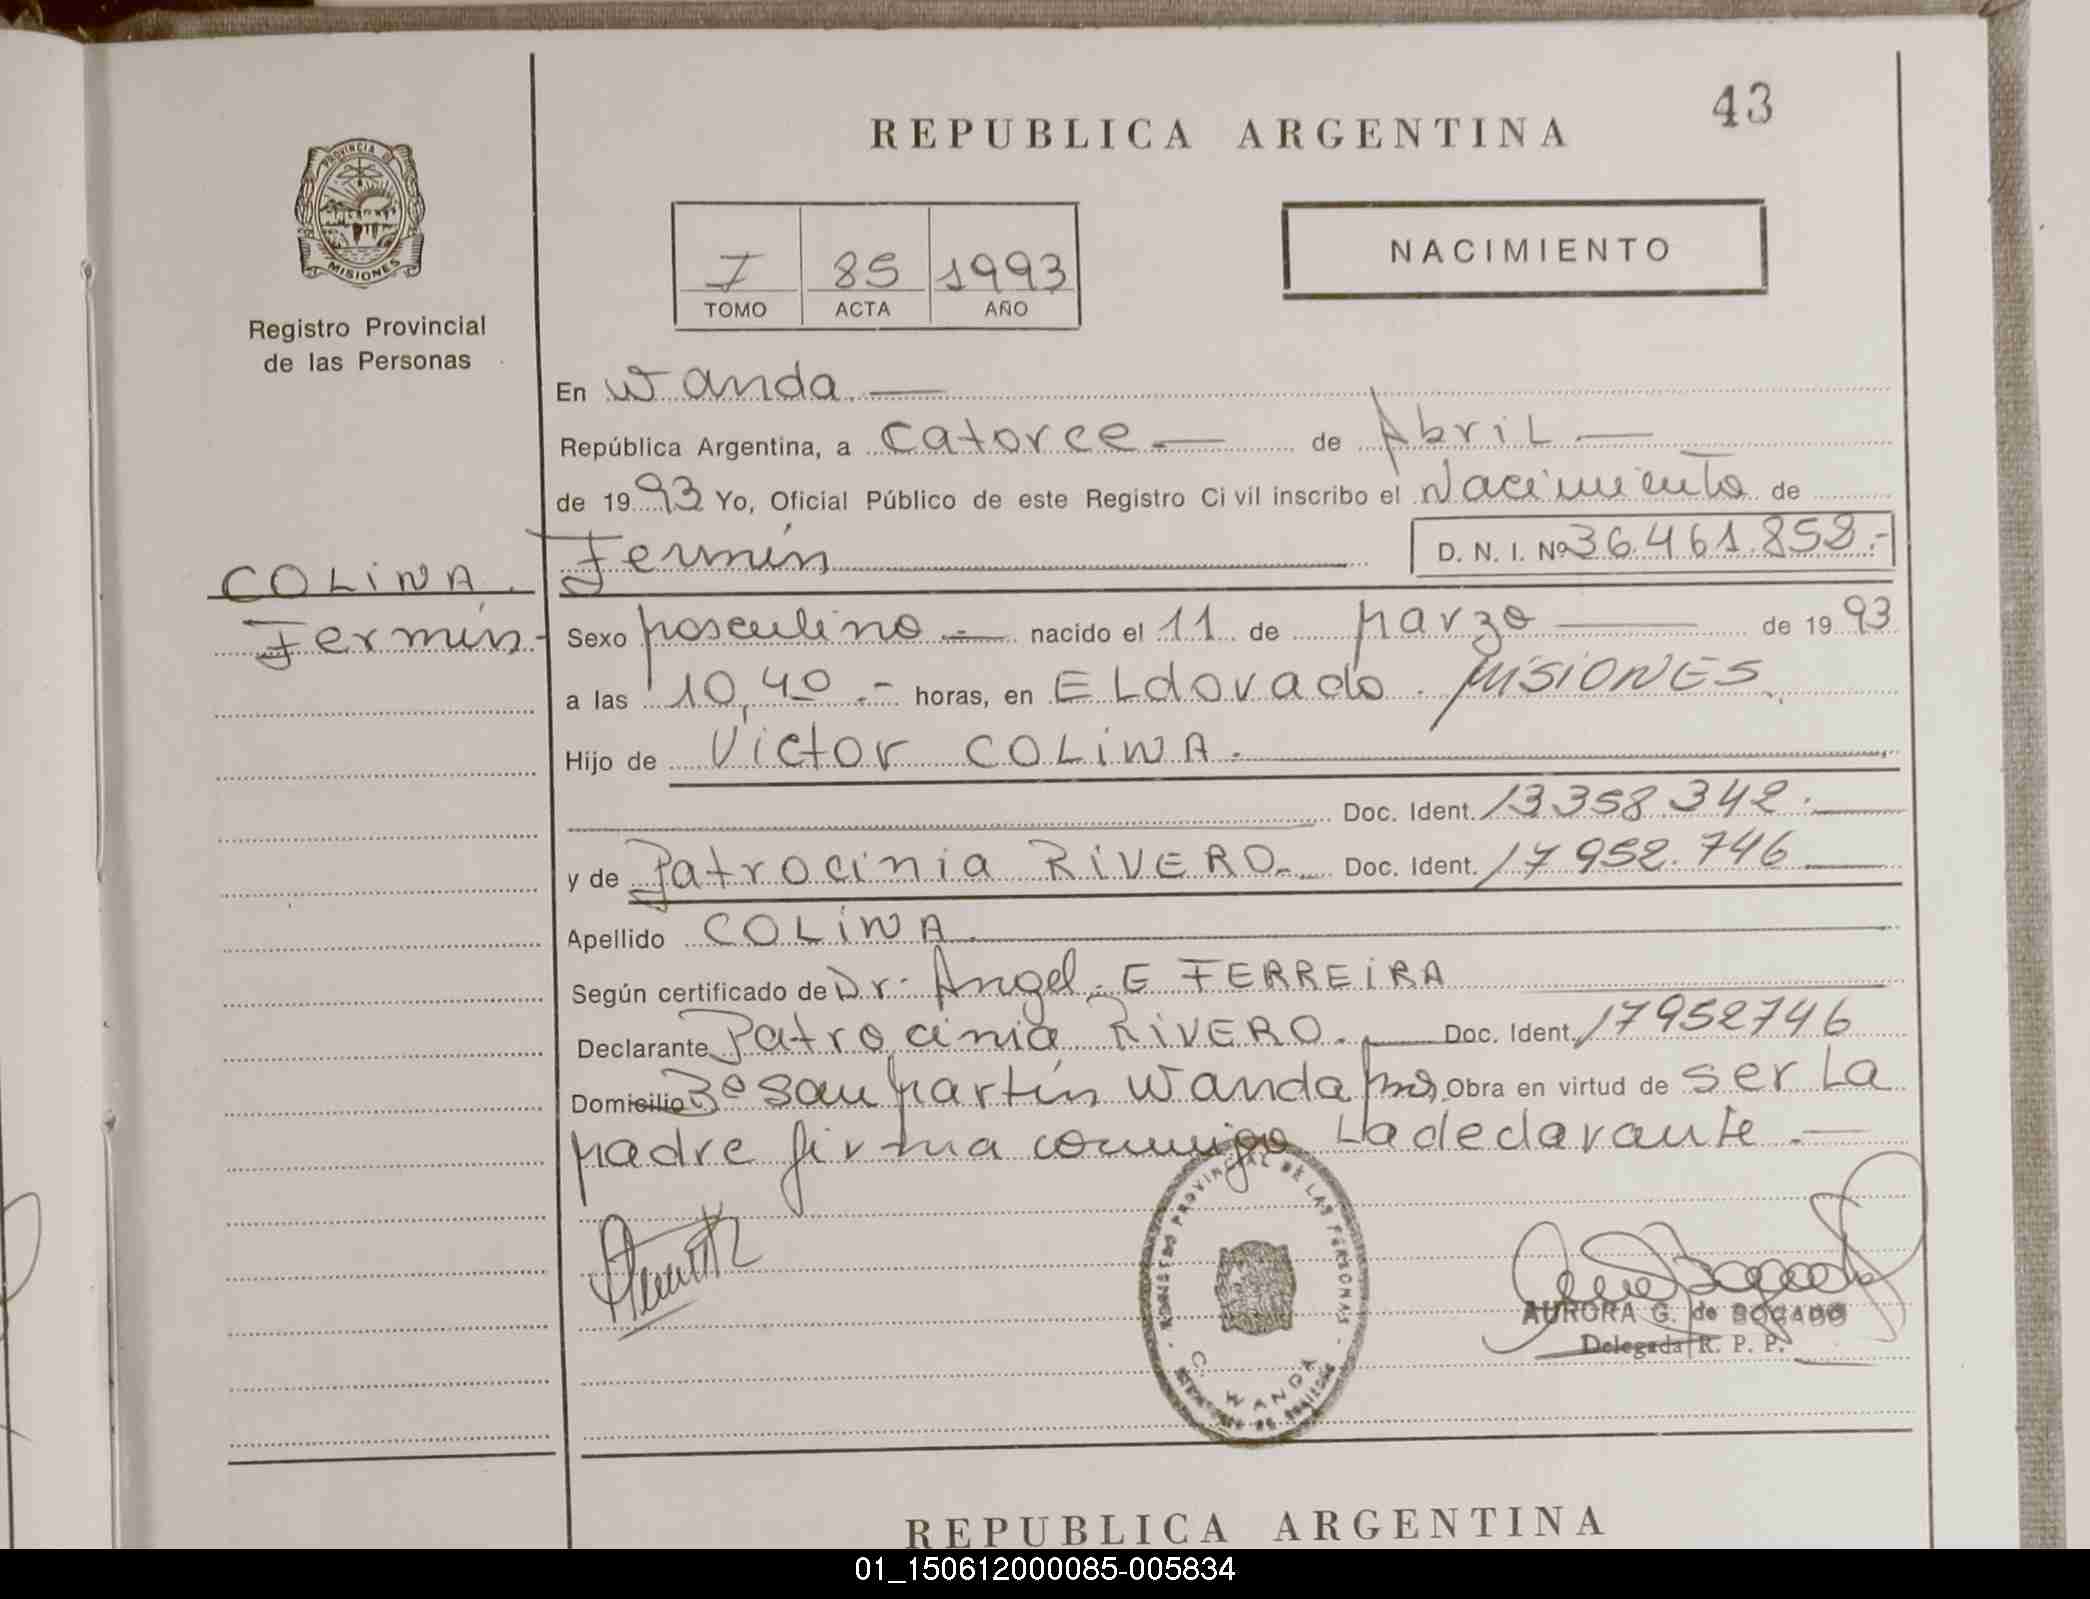 43
REPUBLICA ARGENTINA
PROVINCIA DE
MISIONES
Registro Provincial
de las Personas
NACIMIENTO
I 85 1993
TOMO ACTA AÑO
En Wanda.—
República Argentina, a Catorce.— de Abril —
de 1993 Yo, Oficial Público de este Registro Civil inscribo el Nacimiento de
Fermín D. N. I. Nº 36.461.858.-
COLINA.
Fermín.-
Sexo Masculino.— nacido el 11 de Marzo — de 1993
a las 10,40.- horas, en ELdorado. MISIONES.
Hijo de Victor COLINA.
Doc. Ident. 13.358.342.—
y de Patrocinia RIVERO.- Doc. Ident. 17.952.746 —
Apellido COLINA.
Según certificado de Dr. Angel. E FERREIRA
Declarante Patrocinia RIVERO.— Doc. Ident. 17952746
Domicilio Bº San Martín Wanda Obra en virtud de ser La
Madre firma conmigo La declarante.—
REGISTRO PROVINCIAL DE LAS PERSONAS
WANDA
AURORA G. de BOGADO
Delegada R. P. P.
REPUBLICA ARGENTINA
01_150612000085-005834